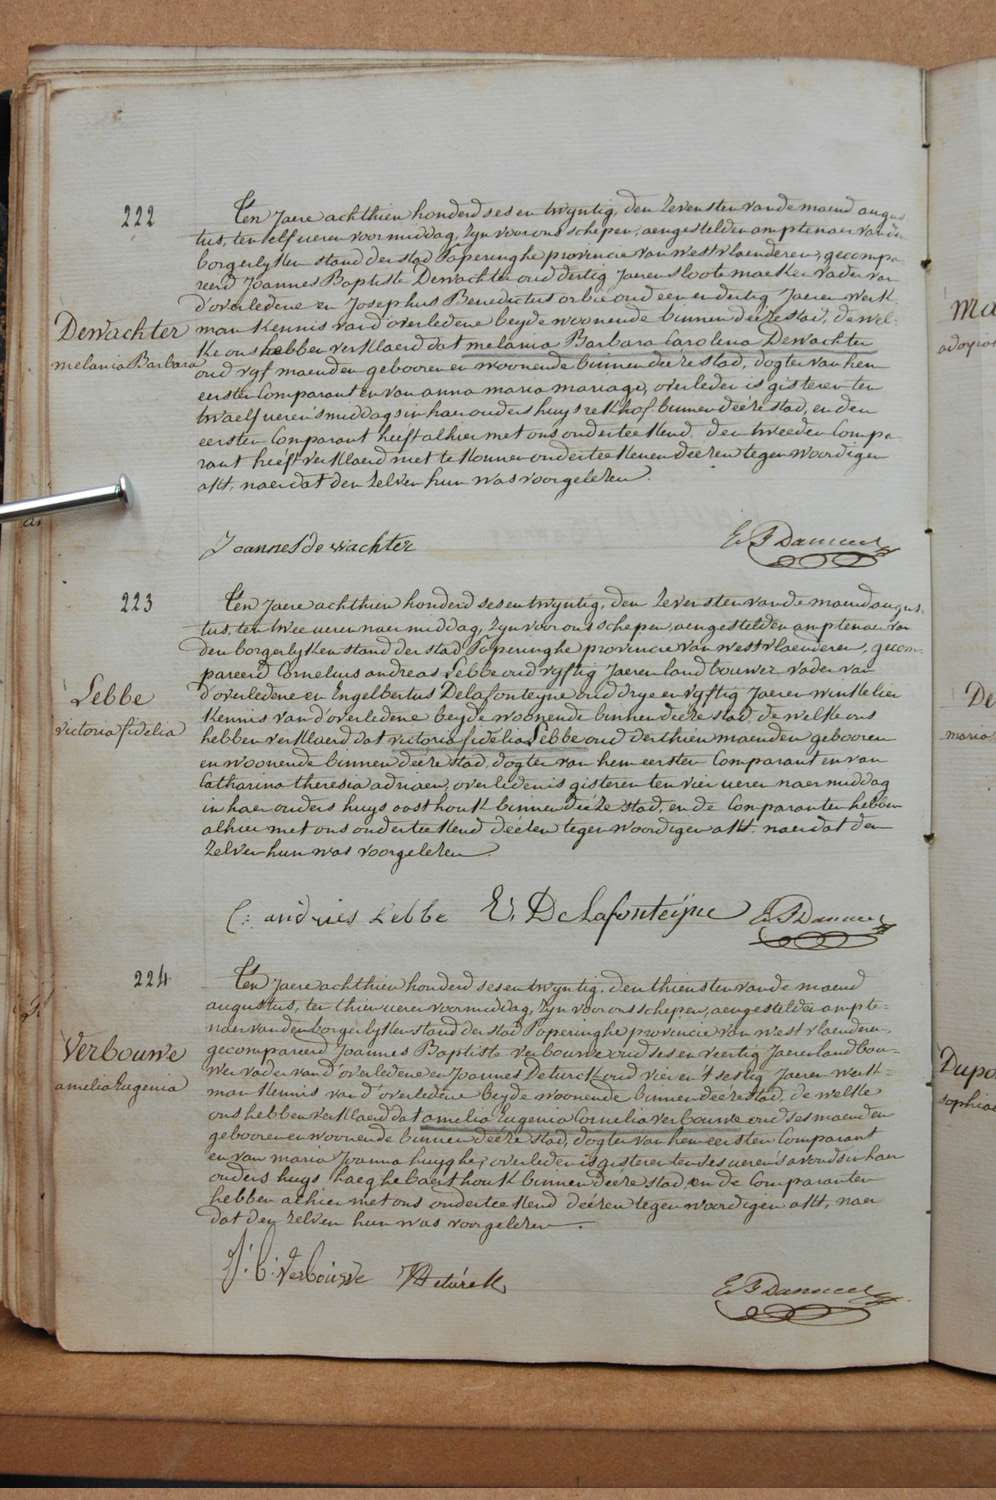 222
Ten Jaere achthien honderd ses en twyntig, den zevensten van de maend augus
tus, ten elf ueren voormiddag, zyn voor ons schepen, aengestelden amptenaer van den
borgerlyken stand der stad Poperinghe provincie van westvlaenderen, gecompa-
reerd Joannes Baptiste Dewachter oud dertig Jaeren slootemaeker vader van
d'overledene en Josephus Benedictus orbie oud een en dertig Jaeren werk-
man kennis van d'overledene beyde woonende binnen deéze stad, de wel-
Dewachter
melania Barbara
ke ons hebben verklaerd dat melania Barbara Carolina Dewachter
oud vyf maenden gebooren en woonende binnen deéze stad, dogter van hem
eersten Comparant en van anna maria mariage, overleden is gisteren ten
twaelf ueren 's middags in haer ouders huys rekhof binnen deéze stad, en den
eersten Comparant heeft alhier met ons onderteekend. den tweeden Compa-
rant heeft verklaerd niet te konnen onderteekenen deézen tegenwoordigen
akt, naer dat den zelven hun was voorgelezen.
Joannes de wachter
223
Ten Jaere achthien honderd ses en twyntig, den zevensten van de maend augus-
tus, ten twee ueren naermiddag, zyn voor ons schepen, aengestelden amptenaer van
den borgerlyken stand der stad Poperinghe provincie van westvlaenderen, gecom-
pareerd Cornelius andreas Lebbe oud vyftig Jaeren landbouwer vader van
d'overledene en Engelbertus Delafonteyne oud drye en vyftig Jaeren winkelier
kennis van d'overledene beyde woonende binnen deéze stad, de welke ons
Lebbe
victoria fidelia
hebben verklaerd dat victoria fidelia Lebbe oud derthien maenden gebooren
en woonende binnen deéze stad, dogter van hem eersten Comparant en van
Catharina theresia adriaen, overleden is gisteren ten vier ueren naermiddag
in haer ouders huys oosthouk binnen deéze stad, en de Comparanten hebben
alhier met ons onderteekend deézen tegenwoordigen akt. naer dat den
zelven hun was voorgelezen.
C: andries Lebbe E. Delafonteijne
224
Ten Jaere achthien honderd ses en twyntig. den thiensten van de maend
augustus, ten thien ueren voormiddag, zyn voor ons schepen, aengestelden ampte-
naer van den borgerlyken stand der stad Poperinghe provincie van westvlaenderen,
gecompareerd Joannes Baptiste verbouwe oud ses en veertig Jaeren landbou-
wer vader van d'overledene en Joannes Deturck oud vier en 't sestig Jaeren werk-
man kennis van d'overledene beyde woonende binnen deéze stad, de welke
Verbouwe
amelia Eugenia
ons hebben verklaerd dat amelia Eugenia Cornelia verbouwe oud ses maenden
gebooren en woonende binnen deéze stad, dogter van hem eersten Comparant
en van maria Joanna huyghe, overleden is gisteren ten ses ueren 's avonds in haer
ouders huys haeghebaerthouk binnen deéze stad, en de Comparanten
hebben alhier met ons onderteekend deézen tegenwoordigen akt, naer
dat den zelven hun was voorgelezen.
J: b: verbouwe Deturck
Ma
De
maria
Dupo
sophia